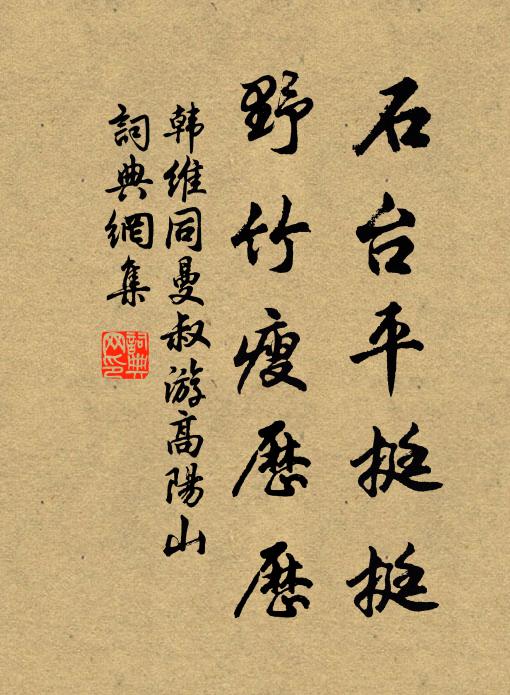 石台平挺挺
野竹瘦歷歷
韩维同曼叔游高陽山
詞典網集
詞典網印